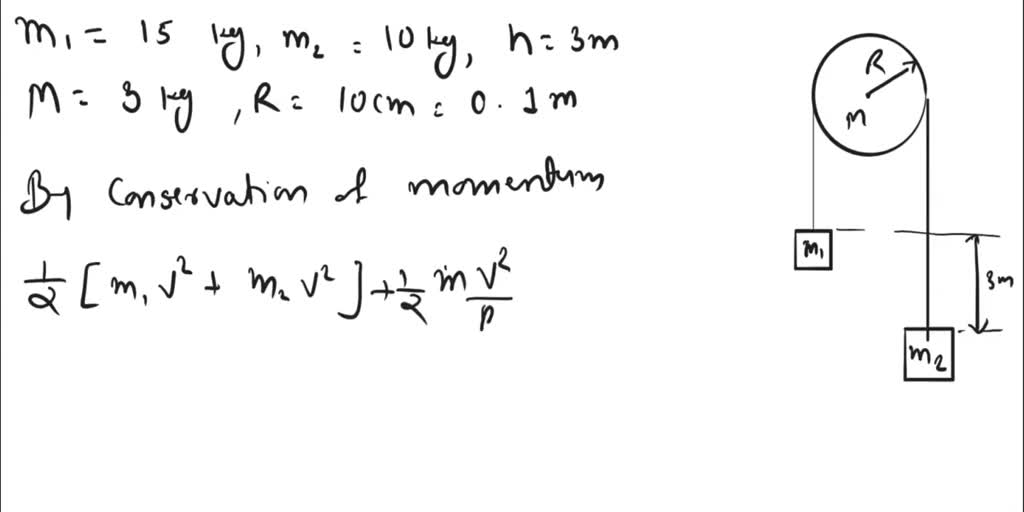 m₁ = 15 kg, m₂ = 10 kg, h = 3m
M = 3 kg, R = 10cm = 0.1m
By Conservation of momentum
1/2 [m₁v² + m₂v²] + 1/2 m v²/R
R
M
m₁
3m
m₂